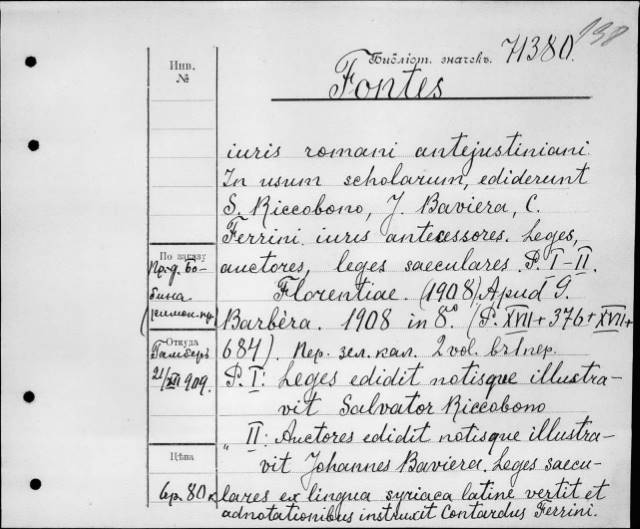 138
Инв.
№
Библіот. значекъ. 71380.
Fontes
iuris romani antejustiniani
In usum scholarum, ediderunt
S. Riccobono, J. Baviera, C.
Ferrini iuris antecessores. Leges,
auctores, leges saeculares. P. I-II.
Florentiae. (1908) Apud G.
Barbèra. 1908 in 8°. (P. XVII+376+XVII+
684). Пер. зел. кал. 2 vol. br 1 пер.
P. I: Leges edidit notisque illustra-
vit Salvator Riccobono
" II: Auctores edidit notisque illustra-
vit Johannes Baviera. Leges saecu-
lares ex lingua syriaca latine vertit et
adnotationibus instruxit Contardus Ferrini.
По заказу
Пр-д. Бо-
бина
Откуда
Гамберъ
21/XII 909.
Цѣна
6 р. 80 к